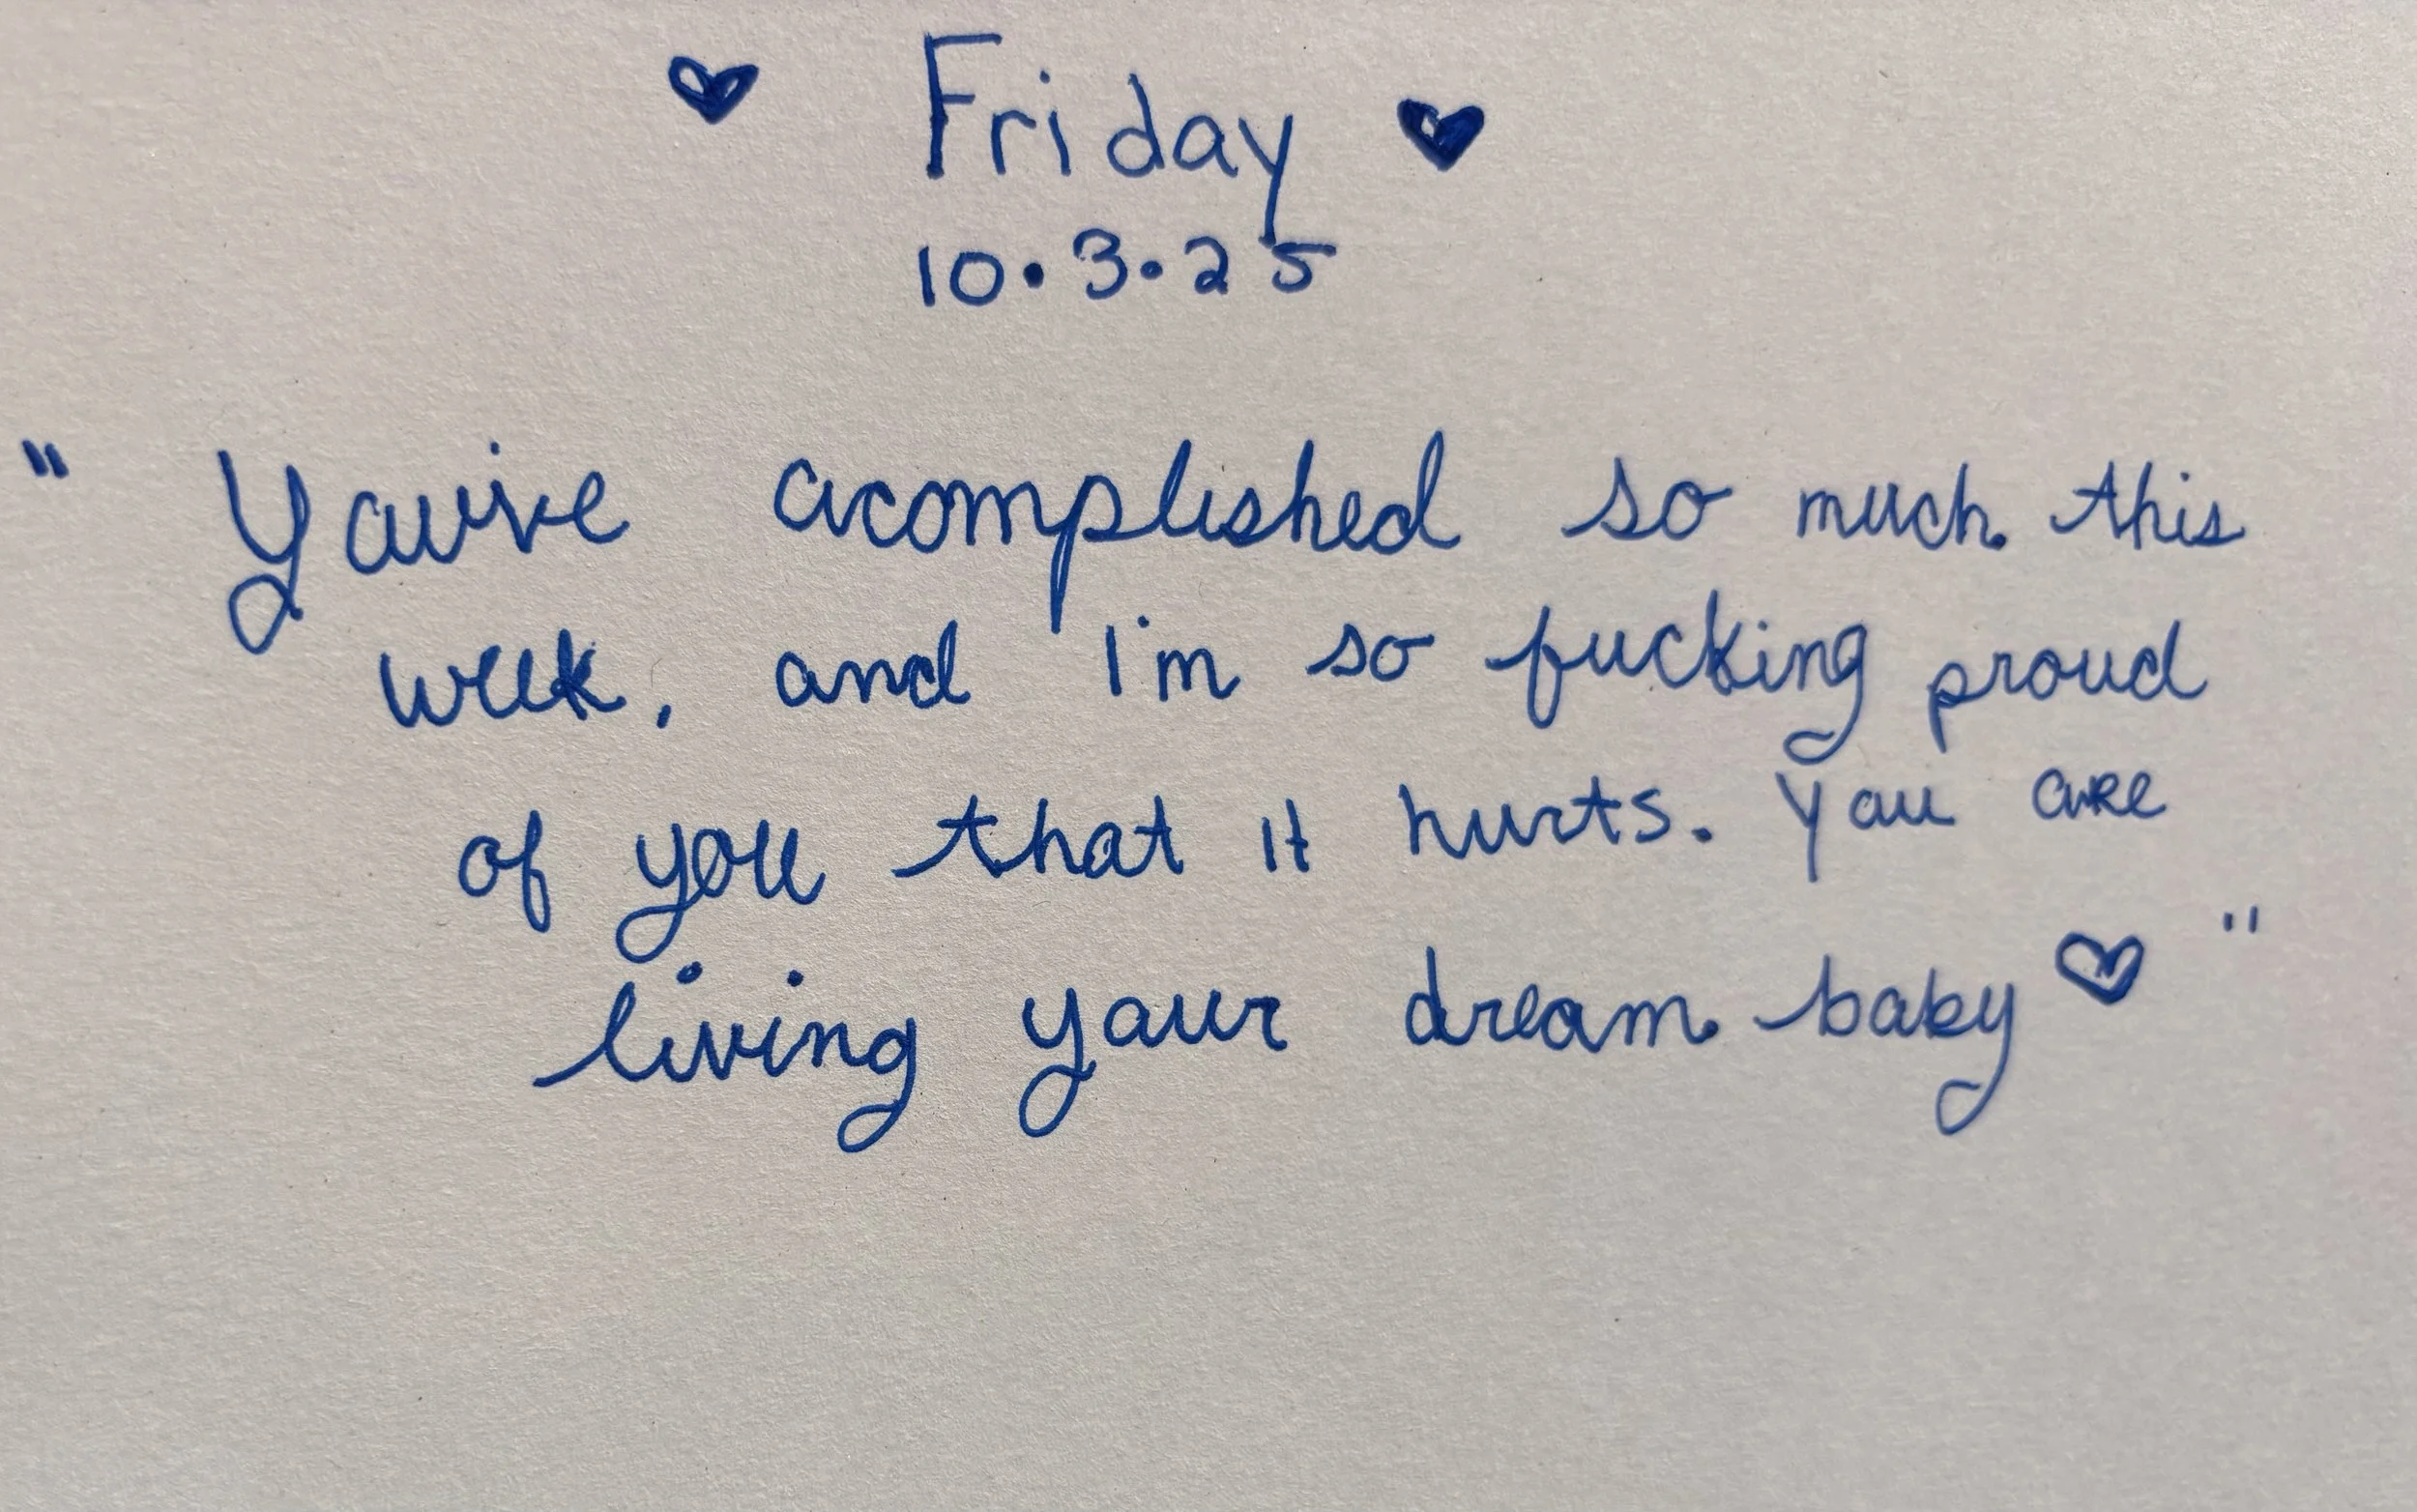 ♥ Friday ♥
10•3•25
" You've acomplished so much this
week, and I'm so fucking proud
of you that it hurts. You are
living your dream baby ♡ "